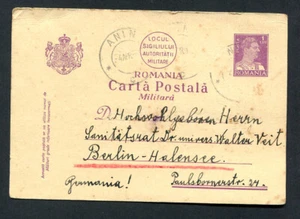 ANIN
LOCUL
SIGILIULUI
AUTORITĂȚII
MILITARE
ROMANIA
ROMANIA
Carta Postală
Militară
Hochwohlgeboren Herrn
Sanitätsrat Dr. univers Walter Veit
Berlin-Halensee.
Germania! Paulsbornerstr. 27.